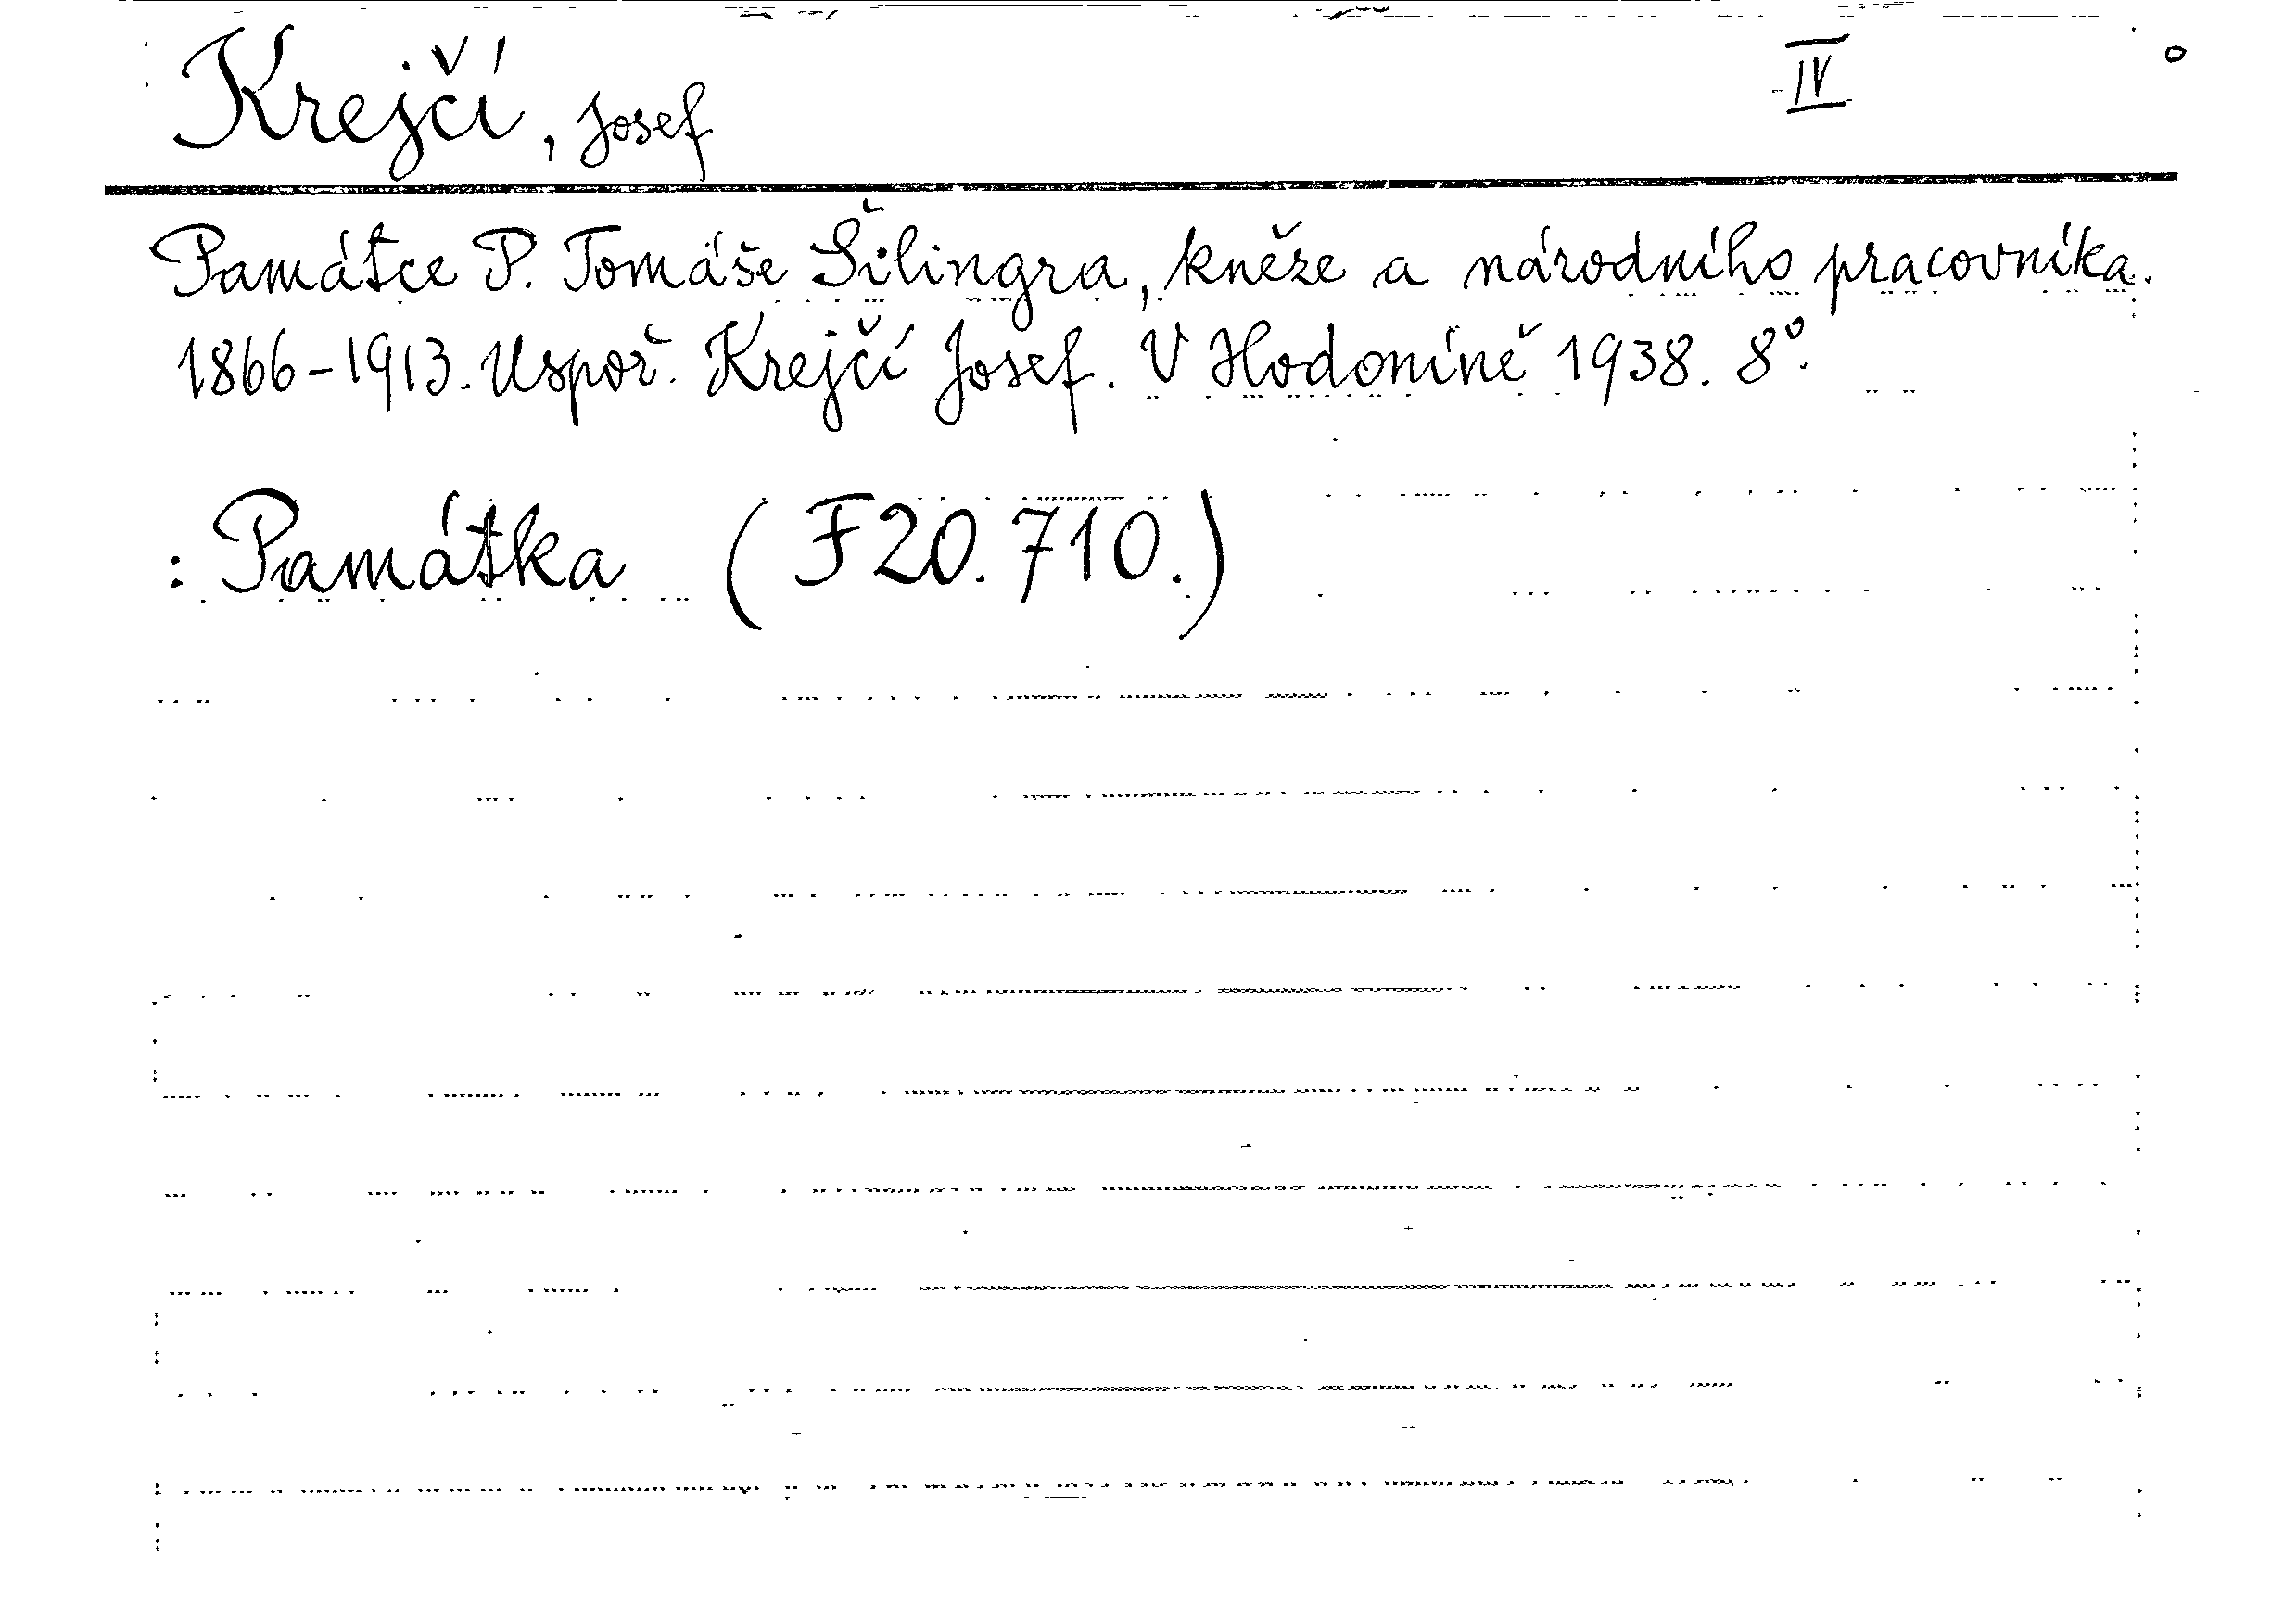 Krejčí, Josef IV
Památce P. Tomáše Šilingra, kněze a národního pracovníka.
1866-1913. Uspoř. Krejčí Josef. V Hodoníně 1938. 8°.
: Památka (F20.710.)